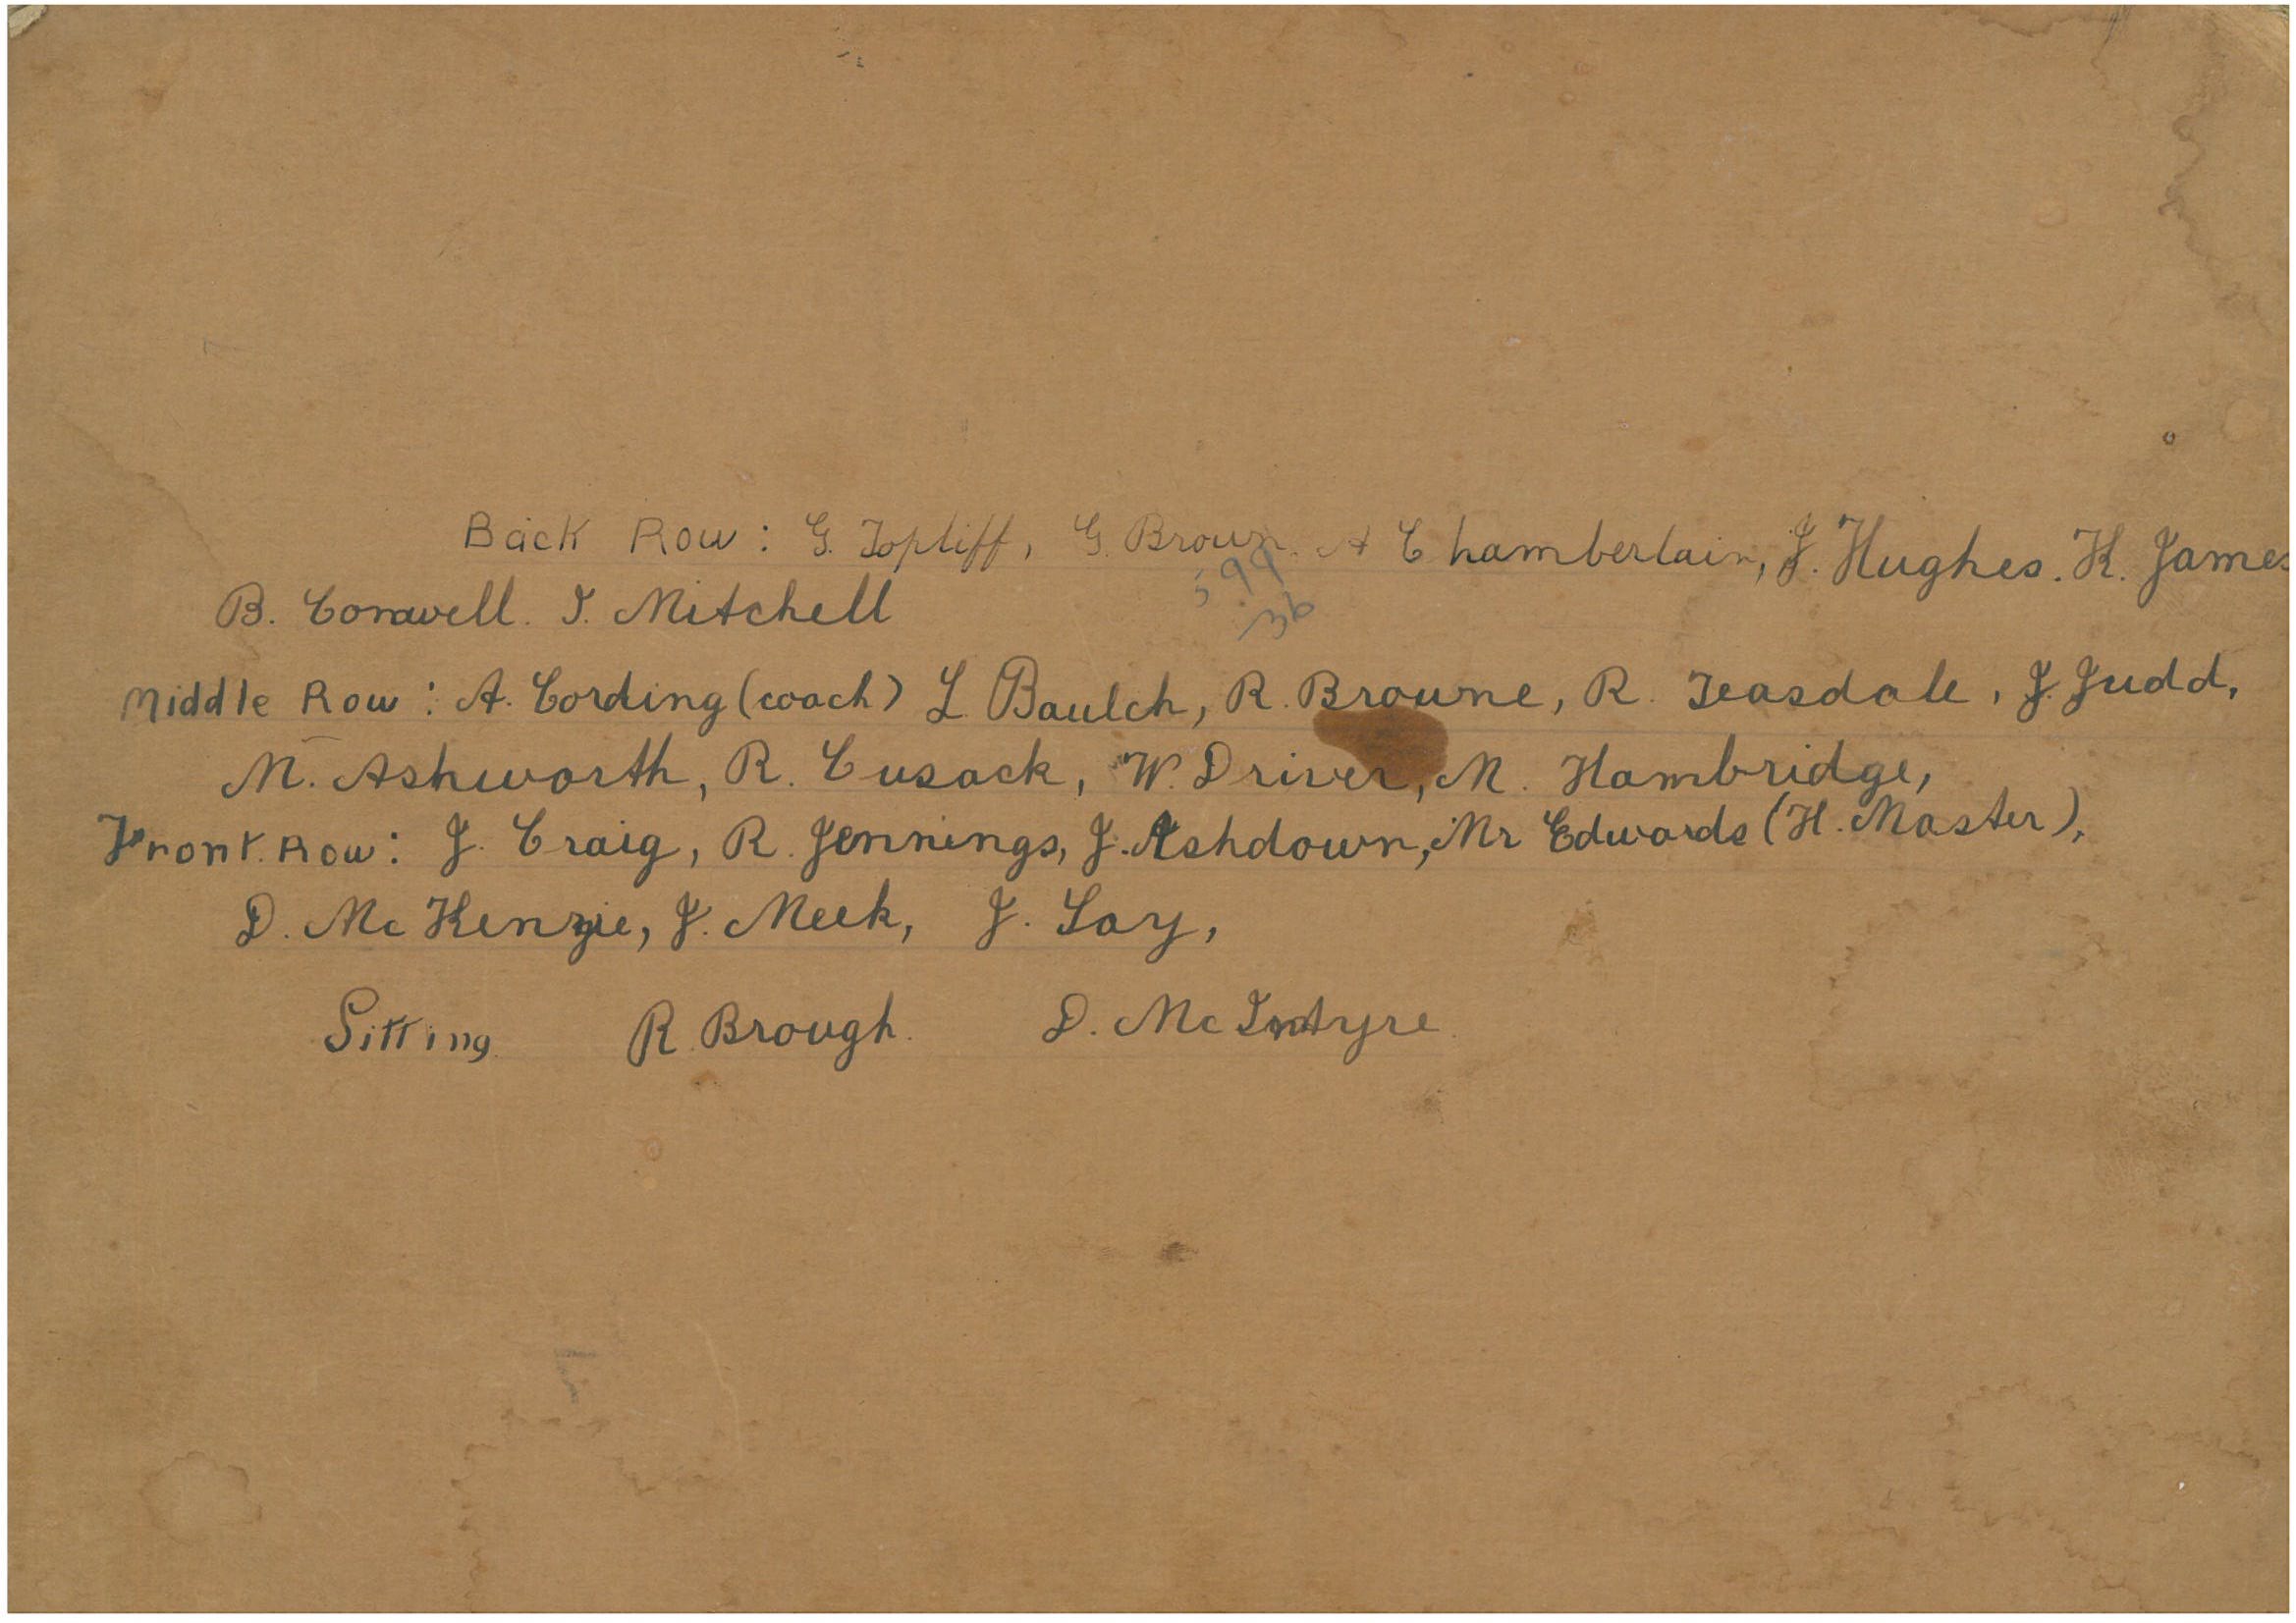 Back Row: G. Topliff, G. Brown. A Chamberlain, J. Hughes. K. James
599
36
B. Conwell. I. Mitchell
Middle Row: A. Cording (coach) L. Baulch, R. Browne, R. Teasdale, J. Judd,
M. Ashworth, R. Cusack, W. Driver, M. Hambridge,
Front. Row: J. Craig, R. Jennings, J. Ashdown, Mr Edwards (H. Master),
D. McKenzie, J. Meek, J. Lay,
Sitting R. Brough. D. McIntyre.